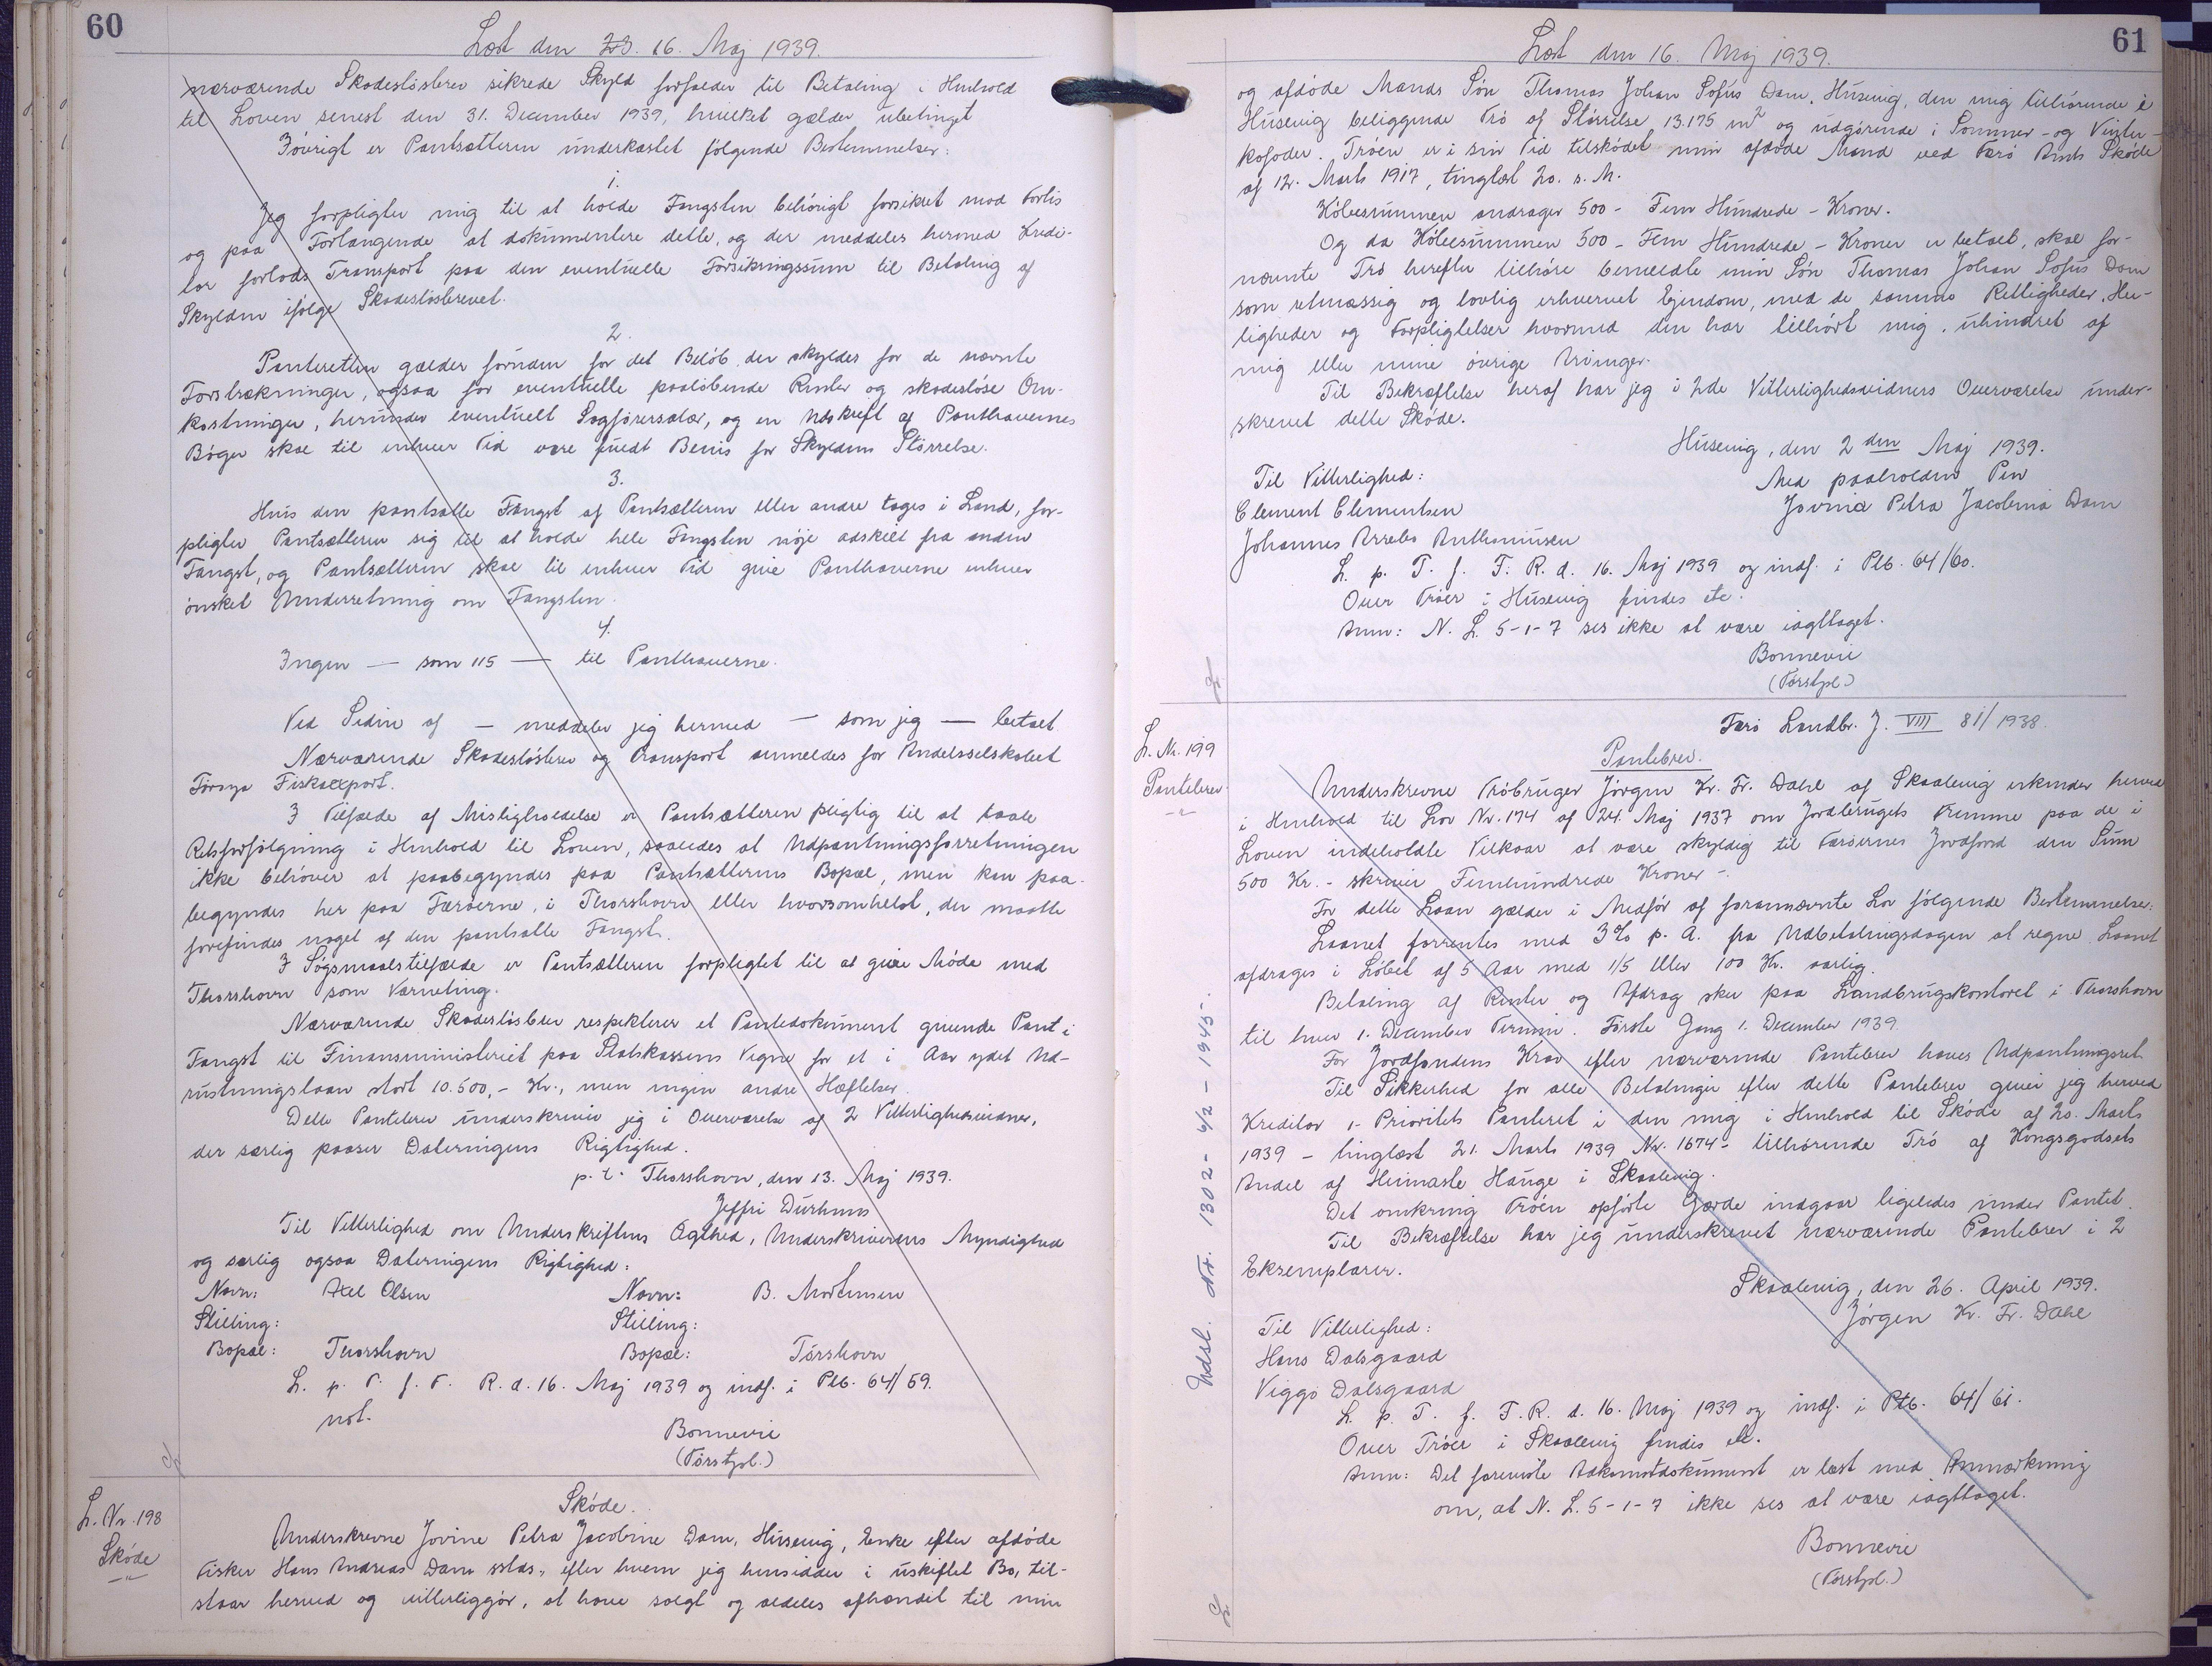 60
Læst den 23. 16. Maj 1939.
nærværende Skadesløsbrev sikrede Skyld forfalder til Betaling i Henhold
til Loven senest den 31. December 1939, hvilket gælder ubetinget
Iøvrigt er Pantsætteren underkastet følgende Bestemmelser:
1.
Jeg forpligter mig til at holde Fangsten behörigt forsikret mod Forlis
og paa Forlangende at dokumentere dette, og der meddeles hermed Kredi-
tor forlods Transport paa den eventuelle Forsikringssum til Betaling af
Skylden ifölge Skadeslösbrevet.
2.
Panteretten gælder foruden for det Belöb, der skyldes for de nævnte
Forstrækninger, ogsaa for eventuelle paalöbende Renter og skadeslöse Om-
kostninger, herunder eventuelt Sagförersalær, og en Udskrift af Panthavernes
Böger skal til enhver Tid være fuldt Bevis for Skyldens Störrelse.
3.
Hvis den pantsatte Fangst af Pantsætteren eller andre tages i Land, for-
pligter Pantsætteren sig til at holde hele Fangsten nöje adskilt fra anden
Fangst, og Pantsætteren skal til enhver Tid give Panthaverne enhver
önsket Underretning om Fangsten.
4.
Ingen — som 115 — til Panthaverne.
Ved Siden af — meddeler jeg hermed — som jeg — betalt
Nærværende Skadeslösbrev og Transport anmeldes for Andelsselskabet
Föroya Fiskaexport.
I Tilfælde af Misligholdelse er Pantsætteren pligtig til at taale
Retsforfölgning i Henhold til Loven, saaledes at Udpantningsforretningen
ikke behöver at paabegyndes paa Pantsætterens Bopæl, men kan paa-
begyndes her paa Færöerne, i Thorshavn eller hvorsomhelst, der maatte
forefindes noget af den pantsatte Fangst.
I Sögsmaalstilfælde er Pantsætteren forpligtet til at give Möde med
Thorshavn som Værneting.
Nærværende Skadeslösbrev respekterer et Pantedokument givende Pant i
Fangst til Finansministeriet paa Statskassens Vegne for et i Aar ydet Ud-
rustningslaan stort 10.500,- Kr., men ingen andre Hæftelser.
Dette Pantebrev underskriver jeg i Overværelse af 2 Vitterlighedsvidner,
der særlig paaser Dateringens Rigtighed.
p. t. Thorshavn, den 13. Maj 1939.
Jeffri Durhuus
Til Vitterlighed om Underskriftens Ægthed, Underskriverens Myndighed
og særlig ogsaa Dateringens Rigtighed:
Navn: Axel Olsen Navn: B. Mortensen
Stilling: Stilling:
Bopæl: Thorshavn Bopæl: Tórshavn
L. p. T. f. F. R. d. 16. Maj 1939 og indf. i Ptb. 64/59.
not.
Bonnevie
(Förstpl.)
L. Nr. 198
Sköde
Sköde.
Underskrevne Jovine Petra Jacobine Dam, Husevig, Enke efter afdöde
Fisker Hans Andreas Dam sstds., efter hvem jeg hensidder i uskiftet Bo, til-
staar herved og vitterliggör, at have solgt og aldeles afhændet til min
61
Læst den 16. Maj 1939.
og afdöde Mands Sön Thomas Johan Sofus Dam, Husevig, den mig tilhörende i
Husevig beliggende Trö af Störrelse 13.175 m² og udgörende i Sommer- og Vinter-
kofoder. Tröen er i sin Tid tilsködet min afdöde Mand ved Færö Amts Sköde
af 12. Marts 1917, tinglæst 20. s. M.
Köbesummen andrager 500 - Fem Hundrede - Kroner.
Og da Köbesummen 500 - Fem Hundrede - Kroner er betalt, skal for-
nævnte Trö herefter tilhöre bemeldte min Sön Thomas Johan Sofus Dam
som retmæssig og lovlig erhvervet Ejendom, med de samme Rettigheder, Her-
ligheder og Forpligtelser hvormed den har tilhört mig, uhindret af
mig eller mine övrige Arvinger.
Til Bekræftelse heraf har jeg i 2de Vitterlighedsvidners Overværelse under-
skrevet dette Sköde.
Husevig, den 2 den Maj 1939.
Til Vitterlighed: Med paaholden Pen
Clement Clementsen Jovina Petra Jacobina Dam
Johannes Arrebo Anthoniussen
L. p. T. f. F. R. d. 16. Maj 1939 og indf. i Ptb. 64/60.
Over Tröer i Husevig findes etc.
Anm: N. L. 5-1-7 ses ikke at være iagttaget.
Bonnevie
(Förstpl.)
L. Nr. 199
Pantebrev
Færö Landbr. J. VIII 81/1938.
Pantebrev.
Underskrevne Tröbruger Jörgen Kr. Fr. Dahl af Skaalevig erkender herved
i Henhold til Lov Nr. 174 af 24. Maj 1937 om Jordbrugets Fremme paa de i
Loven indeholdte Vilkaar at være skyldig til Færöernes Jordfond den Sum
500 Kr. - skriver Femhundrede Kroner -.
For dette Laan gælder i Medför af forannævnte Lov fölgende Bestemmelser:
Laanet forrentes med 3% p. A. fra Udbetalingsdagen at regne. Laanet
afdrages i Löbet af 5 Aar med 1/5 eller 100 Kr. aarlig.
Betaling af Renter og Afdrag sker paa Landbrugskontoret i Thorshavn
til hver 1. December Termin. Förste Gang 1. December 1939.
For Jordfondens Krav efter nærværende Pantebrev haves Udpantningsret
Til Sikkerhed for alle Betalinger efter dette Pantebrev giver jeg herved
Kreditor 1. Prioritets Panteret i den mig i Henhold til Sköde af 20. Marts
1939 - tinglæst 21. Marts 1939 Nr. 1674 - tilhörende Trö af Kongsgodsets
Andel af Heimaste Hauge i Skaalevig.
Det omkring Tröen opförte Gærde indgaar ligeledes under Pantet.
Til Bekræftelse har jeg underskrevet nærværende Pantebrev i 2
Eksemplarer.
Skaalevig, den 26. April 1939.
Jörgen Kr. Fr. Dahl
Til Vitterlighed:
Hans Dalsgaard
Viggo Dalsgaard
L. p. T. f. F. R. d. 16. Maj 1939 og indf. i Ptb. 64/61.
Over Tröer i Skaalevig findes etc.
Anm: Det foreviste Adkomstdokument er læst med Anmærkning
om, at N. L. 5-1-7 ikke ses at være iagttaget.
Bonnevie
(Förstpl.)
Udsl. Nr. 1302 - 6/2 - 1945.